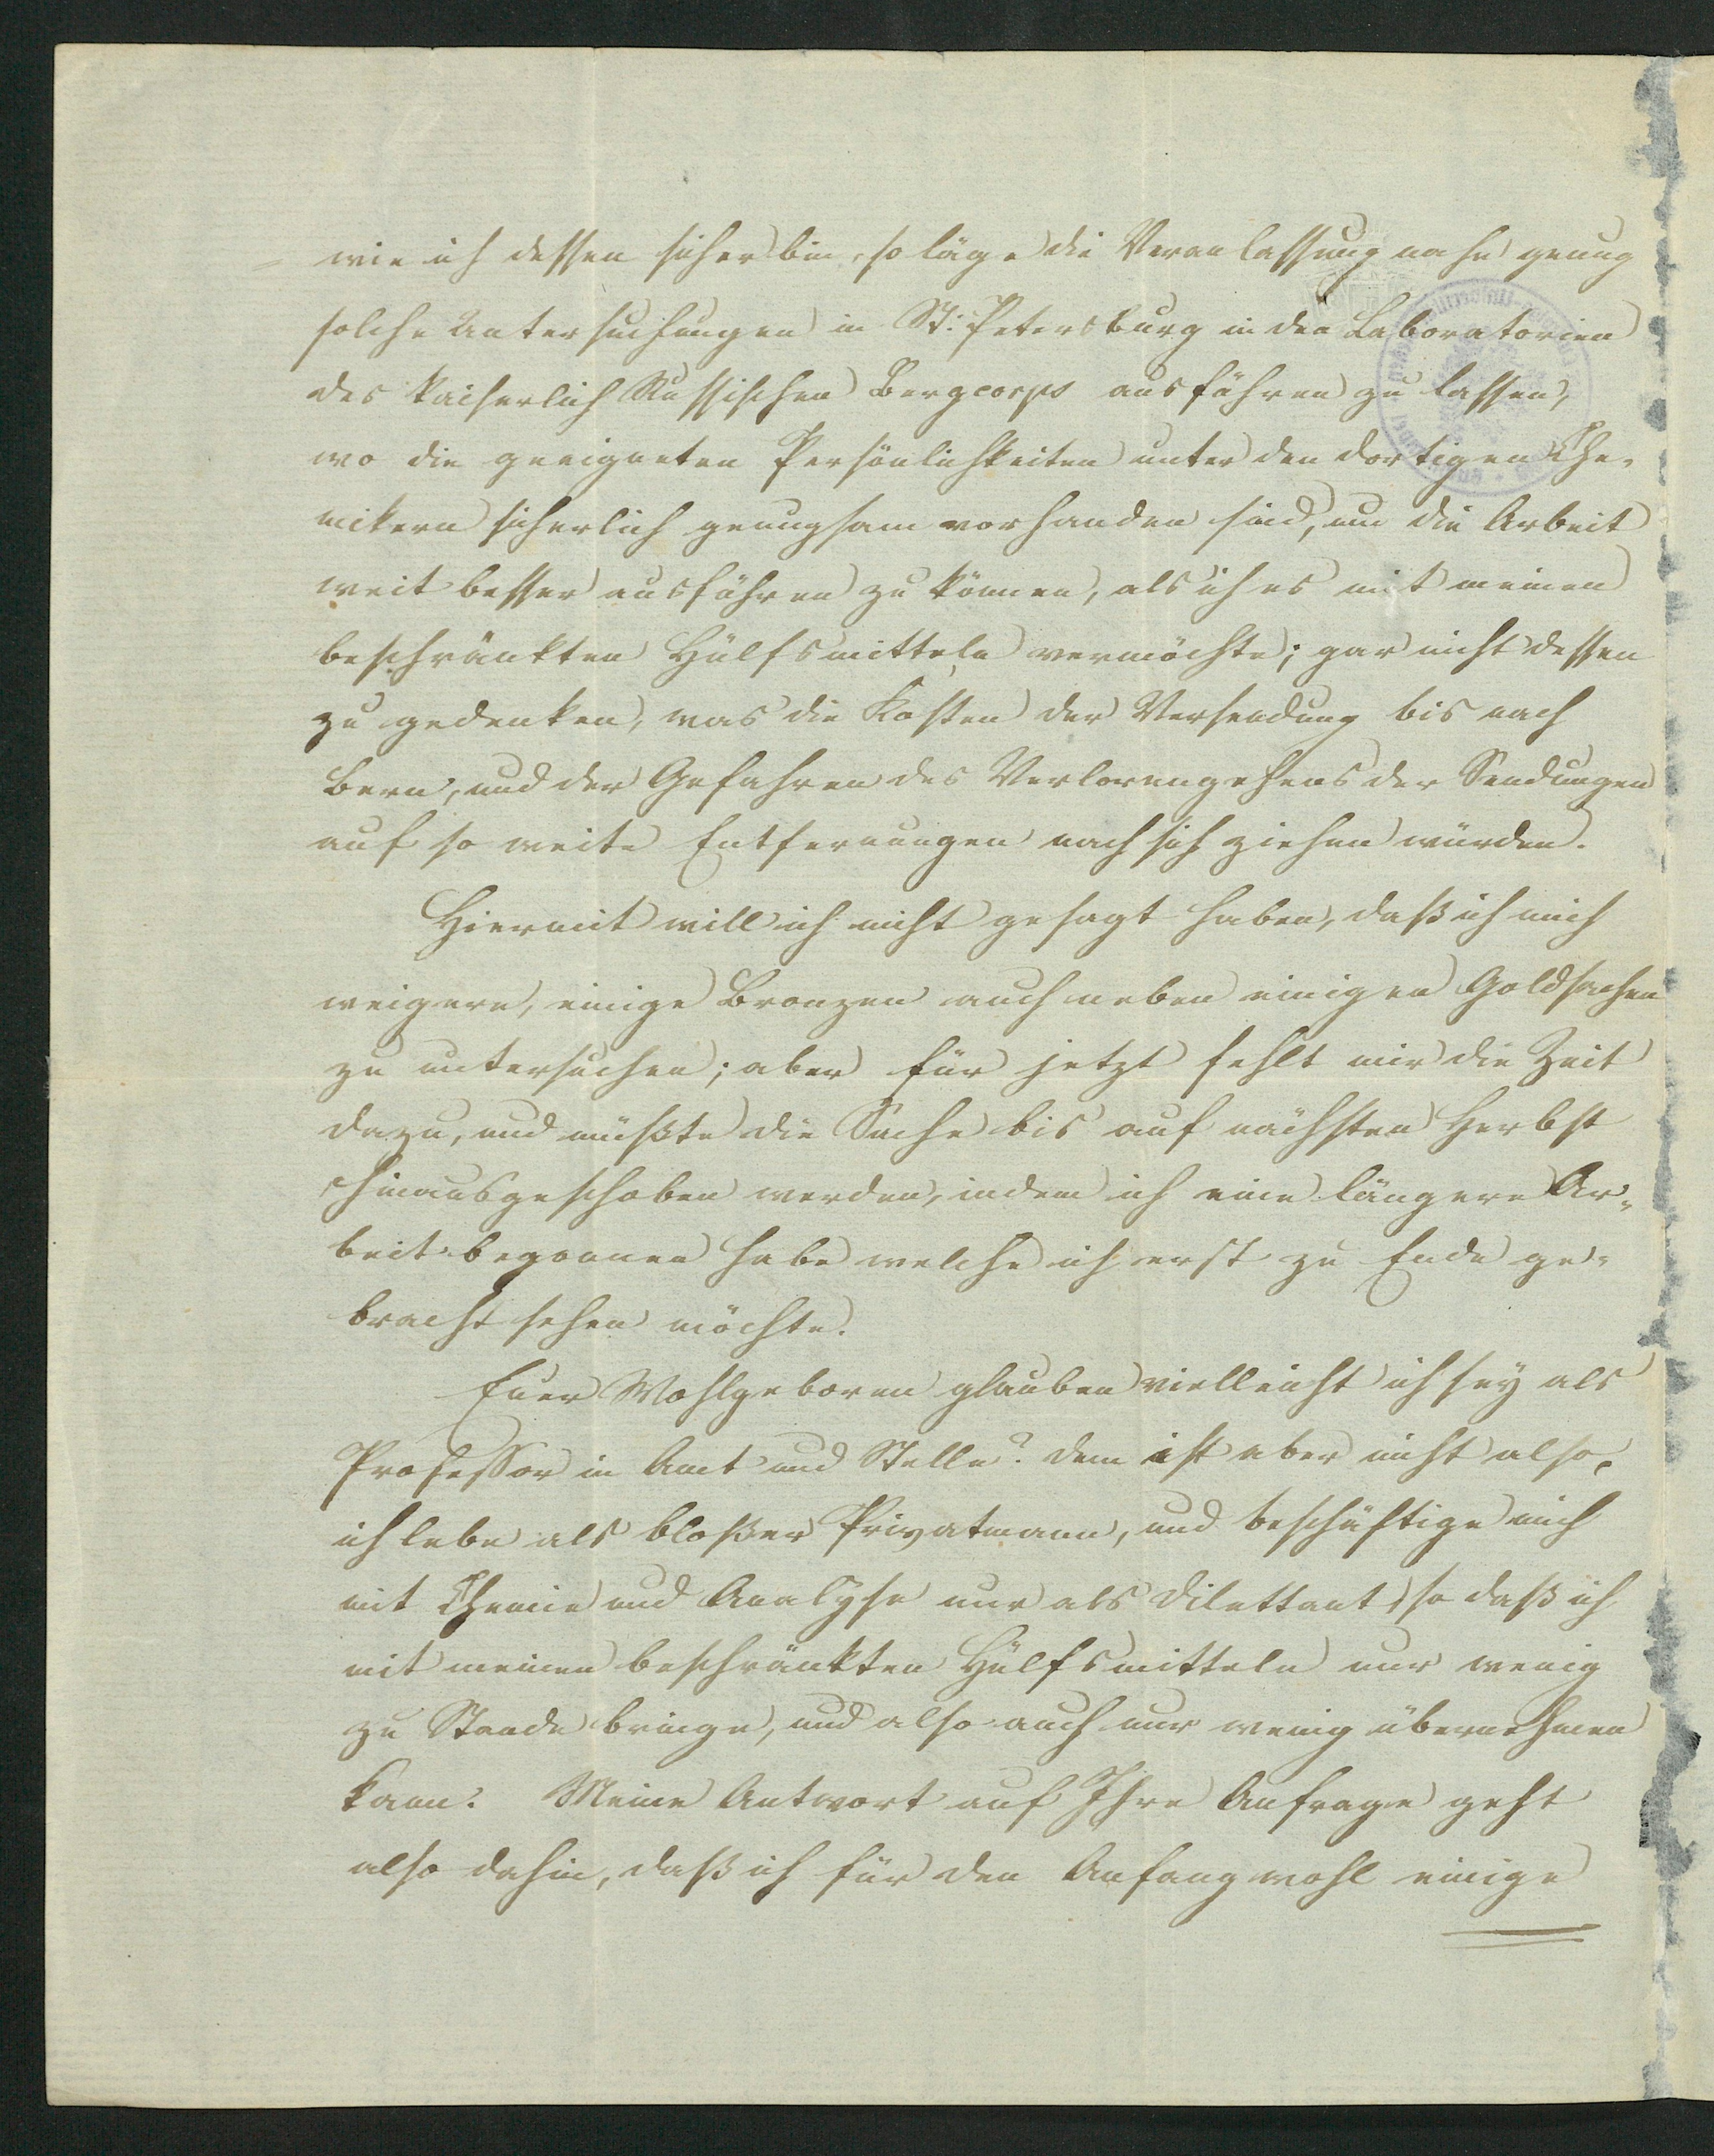 wie ich dessen sicher bin, so läge die Veranlassung nahe genug
solche Untersuchungen in St: Petersburg in den Laboratorien
des kaiserlich Russischen Bergcorps ausführen zu lassen,
wo die geeigneten Persönlichkeiten unter den dortigen Che-
mikern sicherlich genugsam vorhanden sind, um die Arbeit
weit besser ausführen zu können, als ich es mit meinen
beschränkten Hülfsmitteln vermöchte; gar nicht dessen
zu gedenken, was die Kosten der Versendung bis nach
Bern, und der Gefahren des Verlorengehens der Sendungen
auf so weite Entfernungen nach sich ziehen würden.
Hiermit will ich nicht gesagt haben, daß ich mich
weigere, einige Bronzen auch neben einigen Goldsachen
zu untersuchen; aber für jetzt fehlt mir die Zeit
dazu, und müßte die Sache bis auf nächsten Herbst
hinausgeschoben werden, indem ich eine längere Ar-
beit begonnen habe welche ich erst zu Ende ge-
bracht sehen möchte.
Euer Wohlgeboren glauben vielleicht ich sey als
Professor in Amt und Stelle? dem ist aber nicht also,
ich lebe als bloßer Privatmann, und beschäftige mich
mit Chemie und Analyse nur als Dilettant, so daß ich
mit meinen beschränkten Hülfsmitteln nur wenig
zu Stande bringe, und also auch nur wenig übernehmen
kann. Meine Antwort auf Ihre Anfrage geht
also dahin, daß ich für den Anfang wohl einige